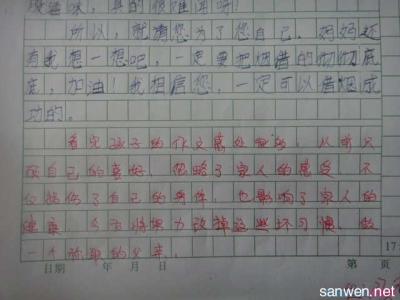 味，真的很难闻呀！
所以，就请您为了您自己，妈妈还
有我想一想吧，一定要把烟借的彻彻底
底，加油！我相信您，一定可以借烟成
功的。
看完孩子的作文感处颇多，从前只
顾自己的喜好，忽略了家人的感受，不
仅损伤了自己的身体，也影响了家人的
健康，今后将努力改掉这些坏习惯，做
一个称职的父亲。
17
日期 年 月 日 第 页
sanwen.net